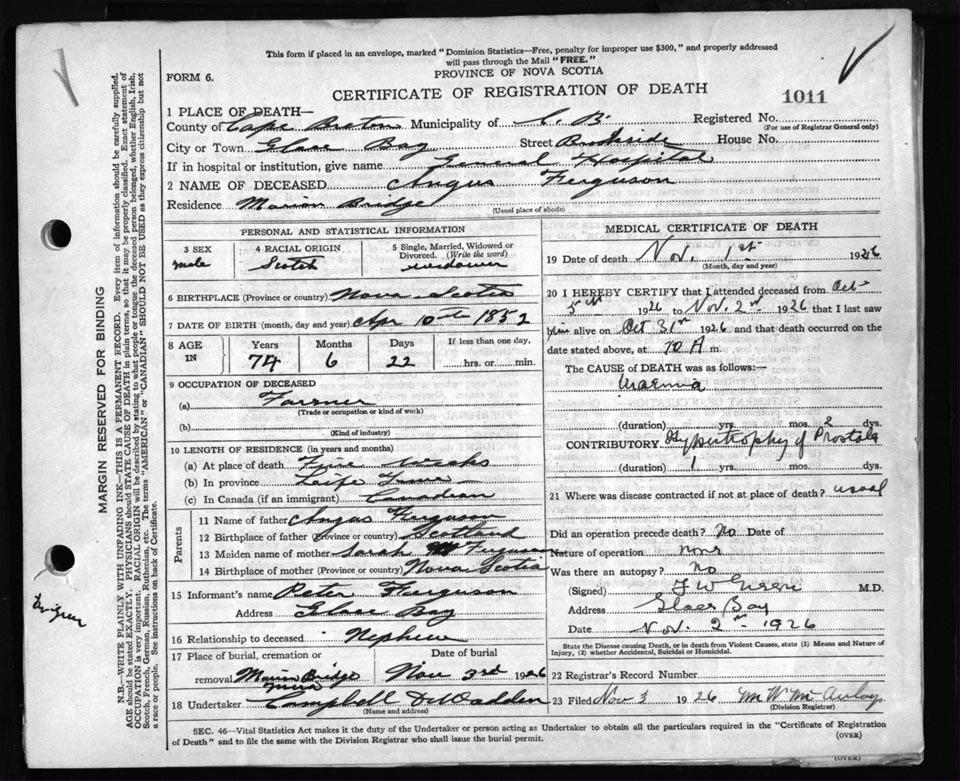 This form if placed in an envelope, marked "Dominion Statistics—Free, penalty for improper use $300," and properly addressed
will pass through the Mail "FREE."
PROVINCE OF NOVA SCOTIA
FORM 6.
CERTIFICATE OF REGISTRATION OF DEATH
1011
1 PLACE OF DEATH—
County of Cape Breton Municipality of C. B. Registered No.
(For use of Registrar General only)
City or Town Glace Bay Street Brookside House No.
If in hospital or institution, give name General Hospital
2 NAME OF DECEASED Angus Ferguson
Residence Marion Bridge
(Usual place of abode)
PERSONAL AND STATISTICAL INFORMATION
3 SEX
male
4 RACIAL ORIGIN
Scotch
5 Single, Married, Widowed or
Divorced. (Write the word)
widower
6 BIRTHPLACE (Province or country) Nova Scotia
7 DATE OF BIRTH (month, day and year) Apr 10th 1852
8 AGE IN
Years Months Days If less than one day,
74 6 22 hrs. or min.
9 OCCUPATION OF DECEASED
(a) Farmer
(Trade or occupation or kind of work)
(b)
(Kind of industry)
10 LENGTH OF RESIDENCE (in years and months)
(a) At place of death Weeks
(b) In province Life Time
(c) In Canada (if an immigrant) Canadian
Parents
11 Name of father Angus Ferguson
12 Birthplace of father (Province or country) Scotland
13 Maiden name of mother Sarah Ferguson
14 Birthplace of mother (Province or country) Nova Scotia
15 Informant's name Peter Ferguson
Address Glace Bay
16 Relationship to deceased Nephew
17 Place of burial, cremation or Date of burial
removal Marion Bridge Nov 3rd 1926
18 Undertaker Campbell
(Name and address)
MEDICAL CERTIFICATE OF DEATH
19 Date of death Nov. 1st 1926
(Month, day and year)
20 I HEREBY CERTIFY that I attended deceased from Oct
5th 1926 to Nov. 2nd 1926 that I last saw
him alive on Oct 31st 1926 and that death occurred on the
date stated above, at 10 A m.
The CAUSE OF DEATH was as follows:—
Uraemia
(duration) yrs. mos. 2 dys.
CONTRIBUTORY Hypertrophy of Prostate
(duration) 1 yrs. mos. dys.
21 Where was disease contracted if not at place of death? usual
Did an operation precede death? No Date of
Nature of operation none
Was there an autopsy? No
(Signed) M.D.
Address Glace Bay
Date Nov. 2nd 1926
State the Disease causing Death, or in death from Violent Causes, state (1) Means and Nature of
Injury, (2) whether Accidental, Suicidal or Homicidal.
22 Registrar's Record Number
23 Filed Nov 3 1926
(Division Registrar)
SEC. 46—Vital Statistics Act makes it the duty of the Undertaker or person acting as Undertaker to obtain all the particulars required in the "Certificate of Registration
of Death" and to file the same with the Division Registrar who shall issue the burial permit. (OVER)
(OVER)
MARGIN RESERVED FOR BINDING
N.B.—WRITE PLAINLY WITH UNFADING INK—THIS IS A PERMANENT RECORD. Every item of information should be carefully supplied.
AGE should be stated EXACTLY. PHYSICIANS should STATE CAUSE OF DEATH in plain terms, so that it may be properly classified. Exact statement of
OCCUPATION is very important. RACIAL ORIGIN will be described by stating to what people or tongue the deceased person belonged, whether English, Irish,
Scotch, French, German, Russian, Ruthenian, etc. The terms "AMERICAN" or "CANADIAN" SHOULD NOT BE USED as they express citizenship but not
a race or people. See instructions on back of Certificate.